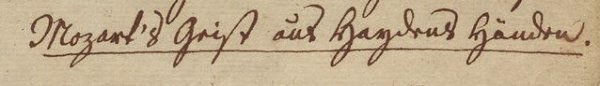 Mozart's Geist aus Haydens Händen.